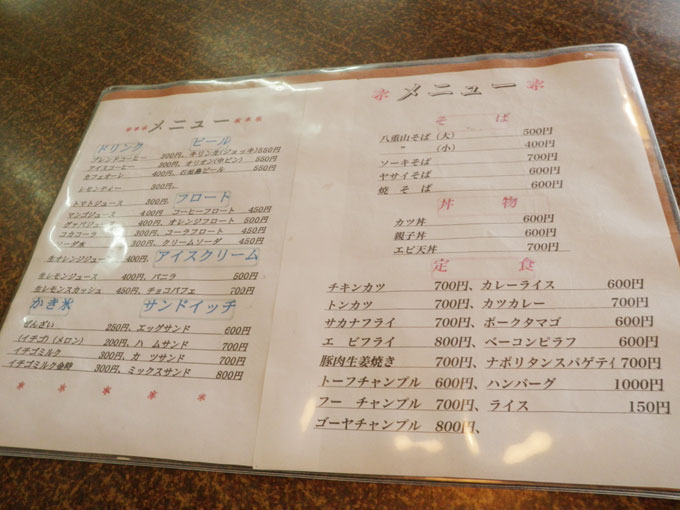 *** メニュー ***
ドリンク ビール
ブレンドコーヒー 300円、キリン生(ジョッキ)550円
アイスコーヒー 300円、オリオン(中ビン) 550円
カフェオーレ 400円、石垣島ビール 550円
レモンティー 300円、
フロート
トマトジュース 300円、
マンゴジュース 400円 コーヒーフロート 450円
グァバジュース 400円、オレンジフロート 500円
コカコーラ 300円、コーラフロート 450円
ソーダ水 300円、クリームソーダ 450円
アイスクリーム
生オレンジジュース 400円、
生レモンジュース 400円、バニラ 500円
生レモンスカッシュ 450円、チョコパフェ 700円
かき氷 サンドイッチ
ぜんざい 250円、エッグサンド 600円
(イチゴ)(メロン) 200円、ハムサンド 700円
イチゴミルク 300円、カツサンド 700円
イチゴミルク金時 300円、ミックスサンド 800円
* * * * *
* メニュー *
そば
八重山そば (大) 500円
〃 (小) 400円
ソーキそば 700円
ヤサイそば 600円
焼そば 600円
丼物
カツ丼 600円
親子丼 600円
エビ天丼 700円
定食
チキンカツ 700円、カレーライス 600円
トンカツ 700円、カツカレー 700円
サカナフライ 700円、ポークタマゴ 600円
エビフライ 800円、ベーコンピラフ 600円
豚肉生姜焼き 700円、ナポリタンスパゲティ 700円
トーフチャンプル 600円、ハンバーグ 1000円
フーチャンプル 700円、ライス 150円
ゴーヤチャンブル 800円、